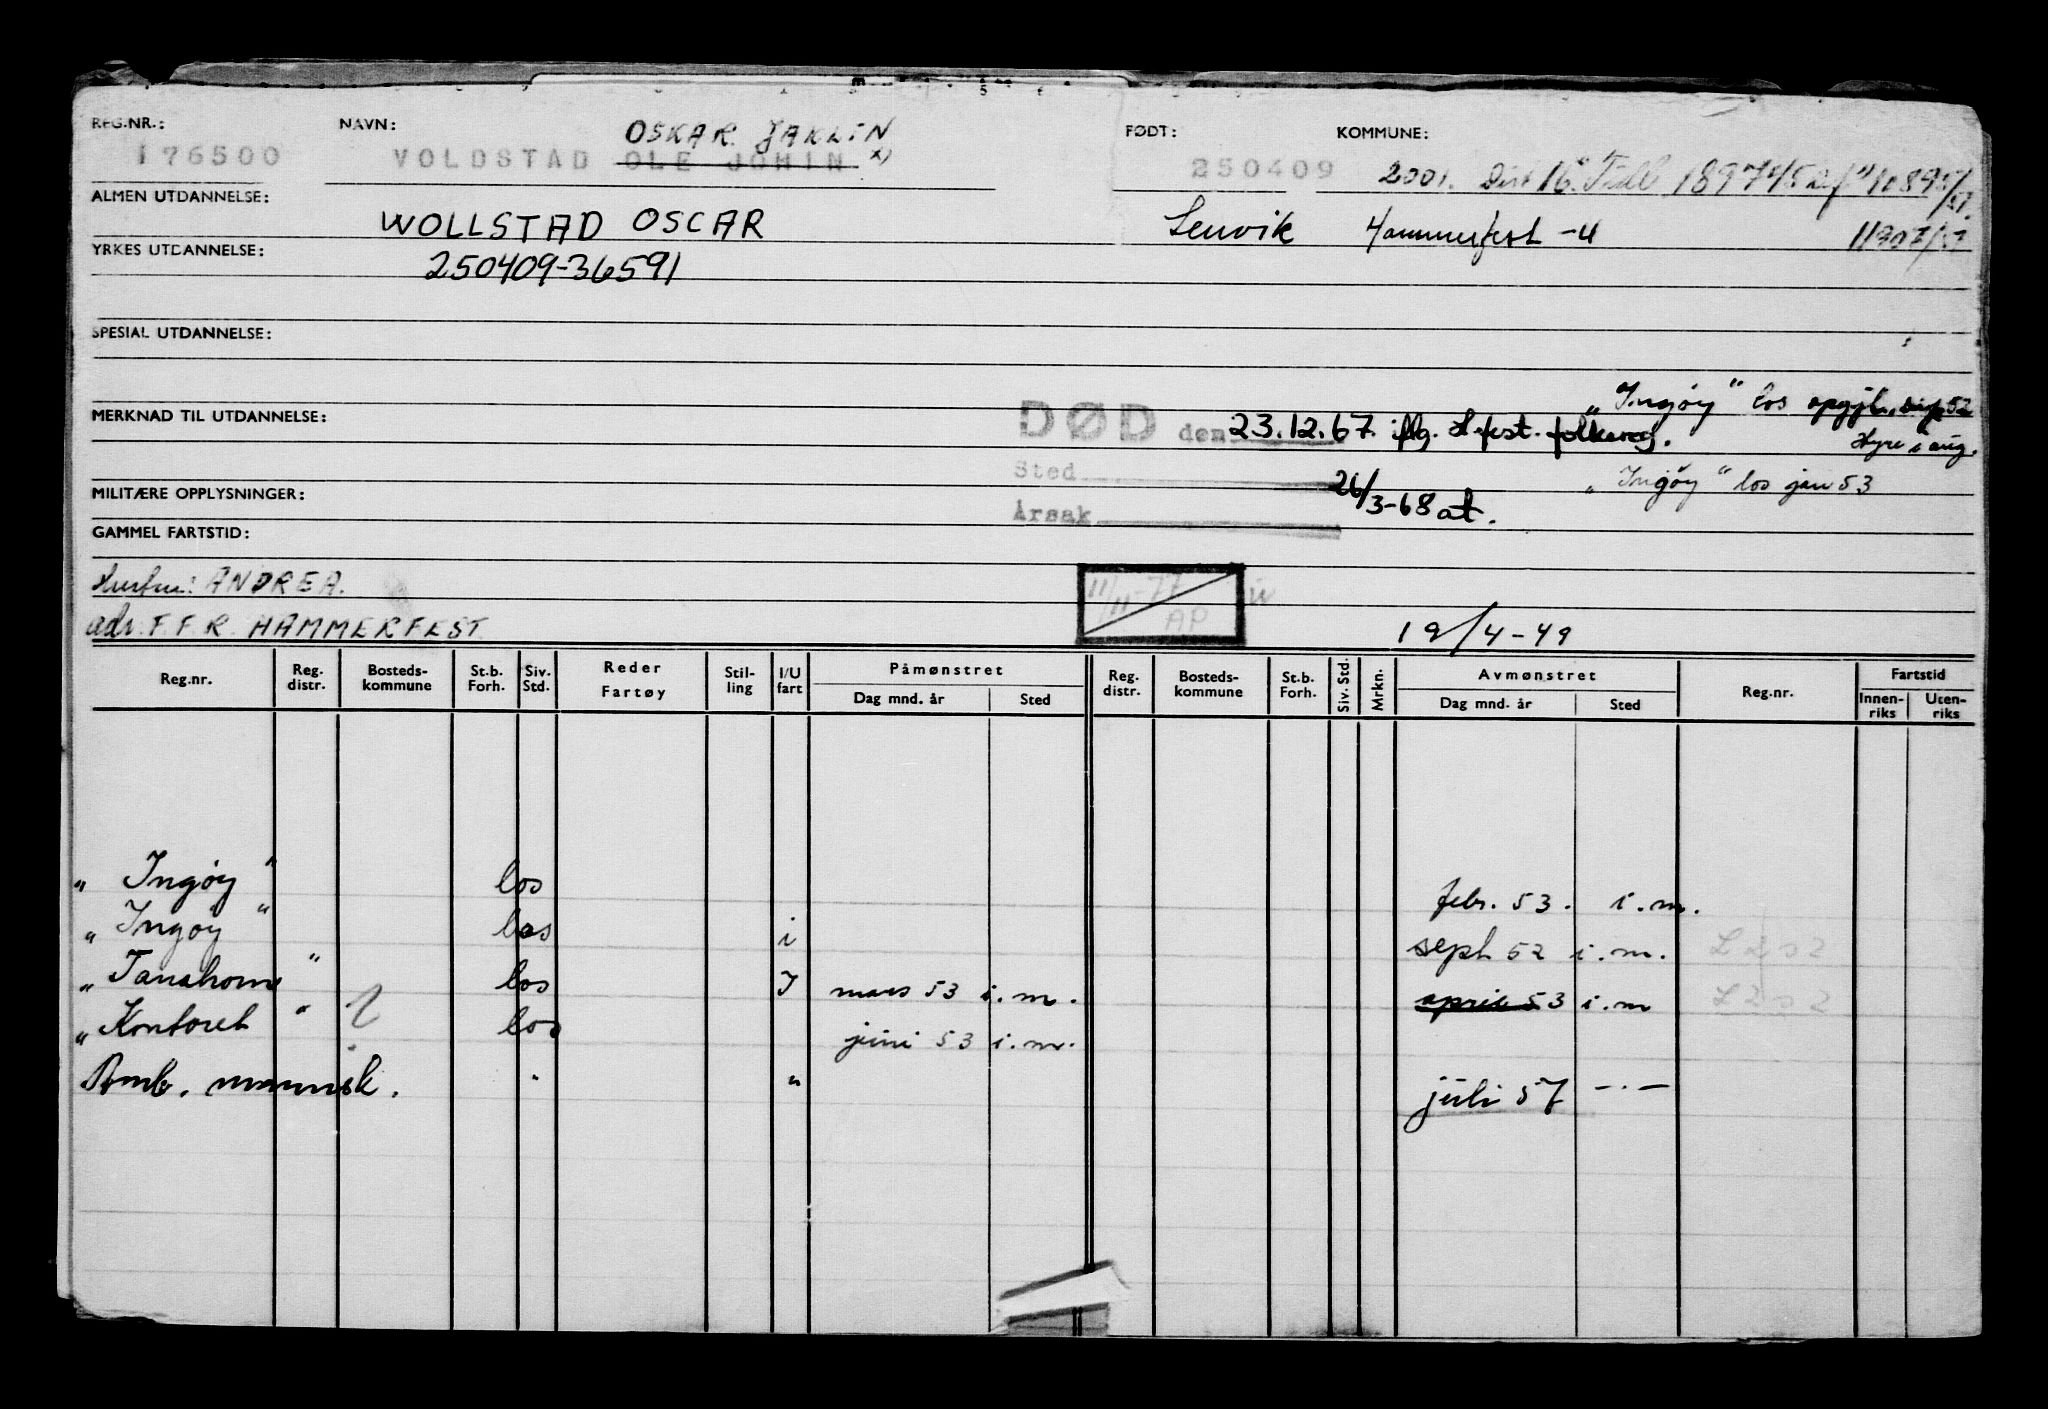 REG.NR.: NAVN: OSKAR JAKLIN FØDT: KOMMUNE:
176500 VOLDSTAD OLE JOHIN x) 250409 2001.
ALMEN UTDANNELSE:
WOLLSTAD OSCAR Lenvik Hammerfest -U 11307/57
YRKES UTDANNELSE:
250409-36591
SPESIAL UTDANNELSE:
„Ingøy" los opgjh. 52
MERKNAD TIL UTDANNELSE:
DØD den 23.12.67. iflg. H.fest. folkereg. Hyre i aug.
Sted „Ingøy" los jan 53
MILITÆRE OPPLYSNINGER: 26/3-68 at.
Årsak
GAMMEL FARTSTID:
Hustru: ANDREA. 11/11-77 AP
adr. F F R HAMMERFEST 19/4-49
Reg.nr. Reg. distr. Bosteds-kommune St.b. Forh. Siv. Std. Reder Fartøy Stil-ling I/U fart Påmønstret Dag mnd. år Sted Reg. distr. Bosteds-kommune St.b. Forh. Siv. Std. Mrkn. Avmønstret Dag mnd. år Sted Reg.nr. Fartstid Innen-riks Uten-riks
„Ingøy" los febr. 53. i.m.
„Ingøy" los i sept 52 i.m. L 252
„Tanahorn" los I mars 53 i.m. april 53 i.m L 252
„Kontoret" los juni 53 i.m.
Omb. mannsk. " " juli 57 -.-